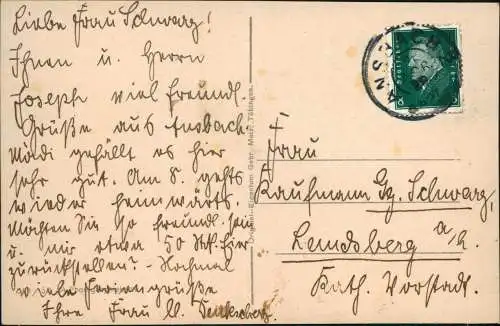 Liebe Frau Schwarz!
Ihnen u. Herrn
Joseph viel freundl.
Grüße aus Ansbach
Mädi gefällt es hier
sehr gut. Am 8. gehts
wieder heimwärts.
Möchten Sie so freundl. sein
u. mir etwa 50 hier
zurückstellen? - Nochmal
viele Feriengrüße
Ihre Frau
Frau
Kaufmann Gg. Schwarz,
Landsberg a/L.
Kath. Vorstadt.
8